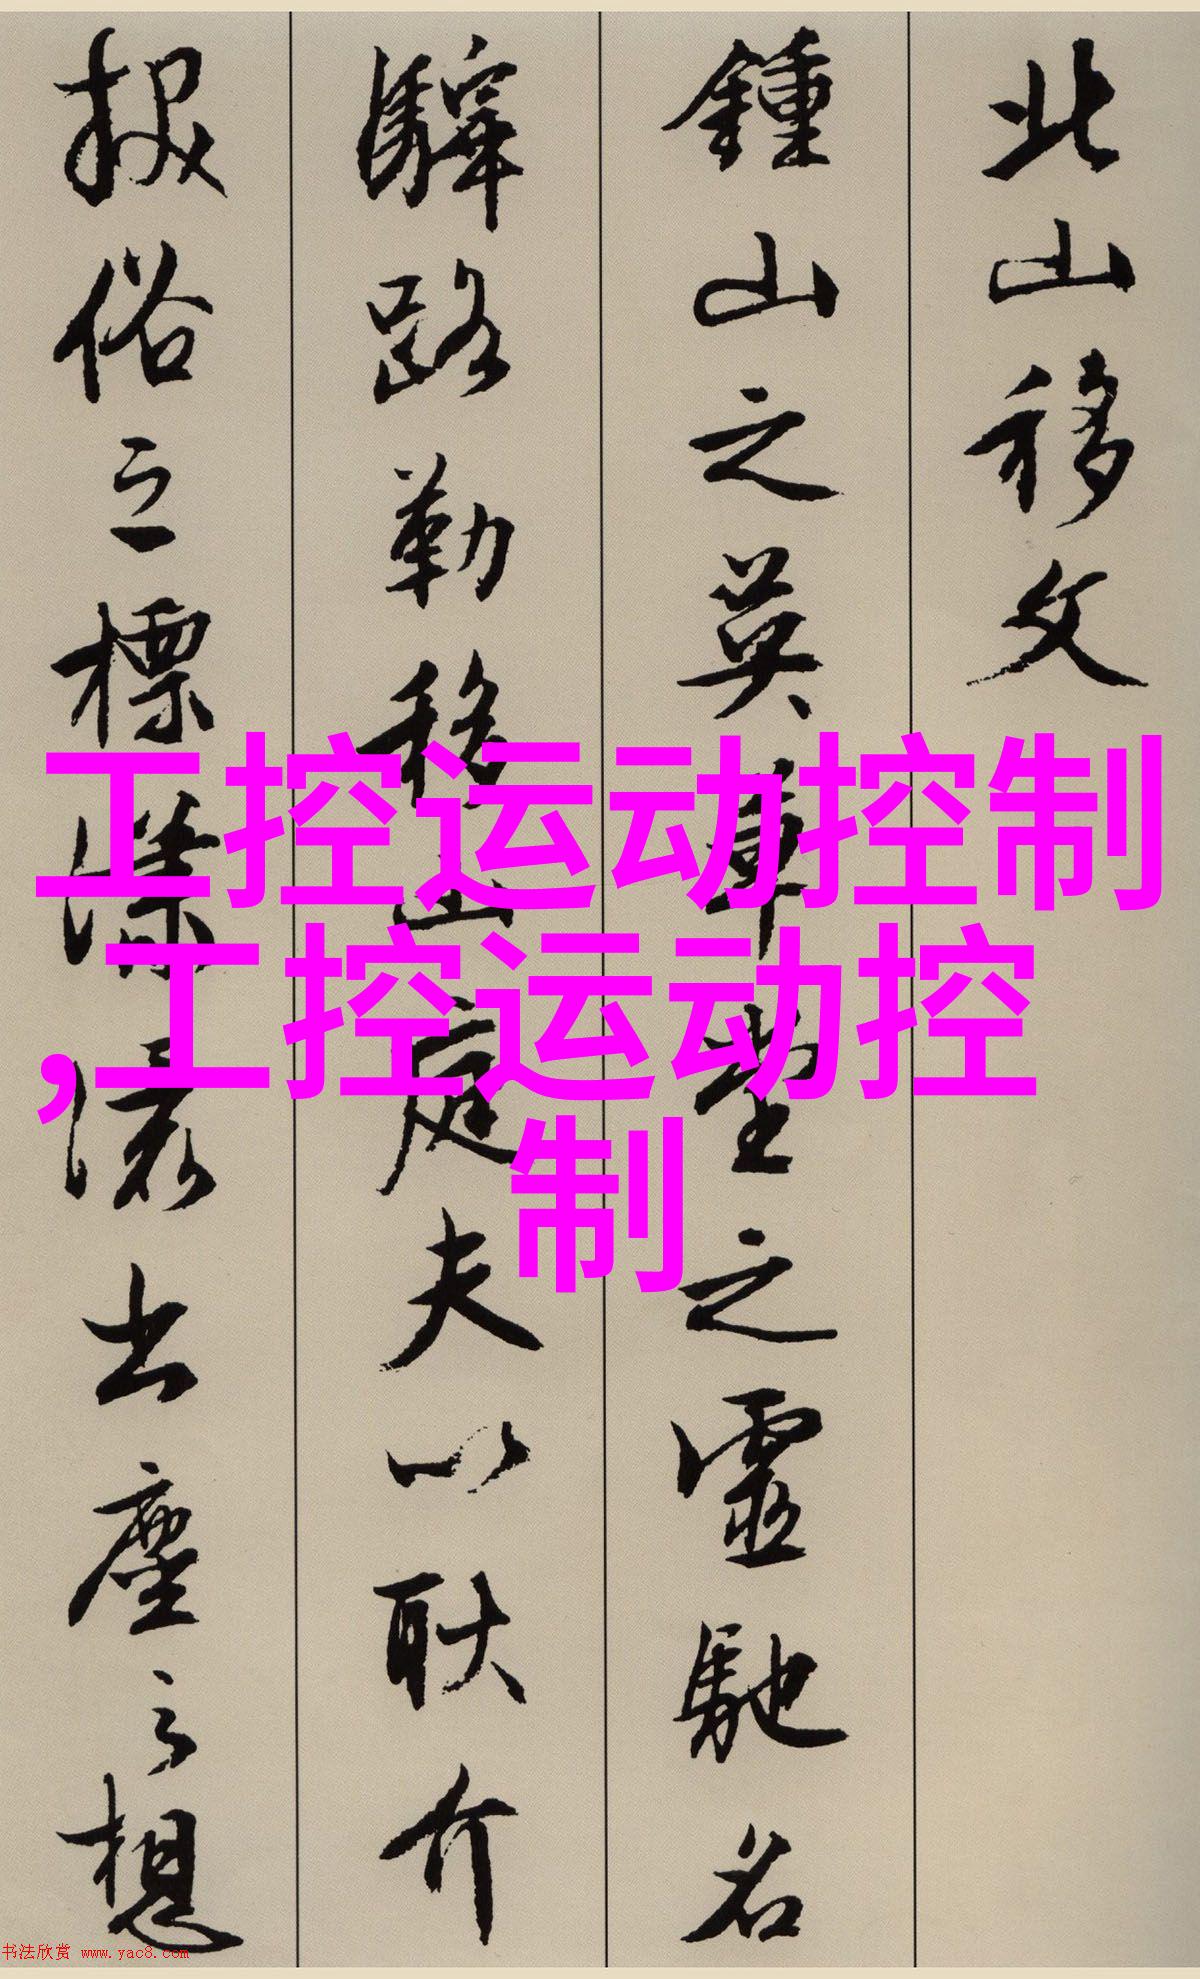 北山移文
鍾山之英草堂之靈馳名
驛路勒移山庭夫以耿介
拔俗之標出塵之想
工控运动控制
,工控运动控
制
书法欣赏 www.yac8.com